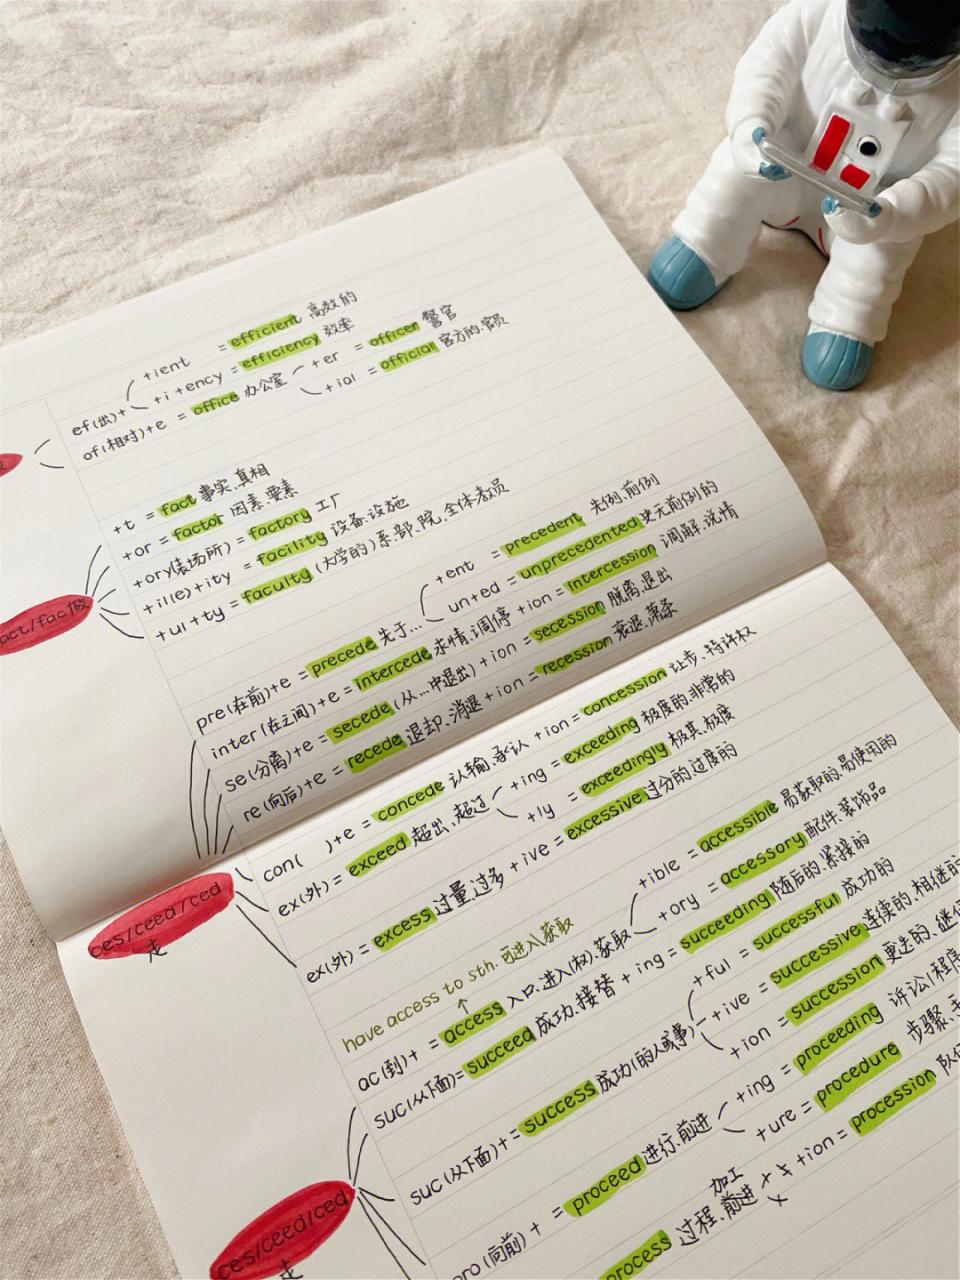 +ient = efficient 高效的
ef(出)+ +i +ency = efficiency 效率
of(相对)+e = office 办公室 +er = officer 警官
+ial = official 官方的.官员
+t = fact 事实.真相
+or = factor 因素.要素
act/fac做 +ory(表场所) = factory 工厂
+il(e)+ity = facility 设备.设施
+ul +ty = faculty (大学的)系.部.院.全体教员
+ent = precedent 先例.前例
pre(在前)+e = precede 先于... un+ed = unprecedented 史无前例的
inter(在之间)+e = intercede 求情.调停 +ion = intercession 调解.说情
se(分离)+e = secede (从...中退出) +ion = secession 脱离.退出
re(向后)+e = recede 退却.消退 +ion = recession 衰退.萧条
ces/ceed/ced
走
con( )+e = concede 认输.承认 +ion = concession 让步.特许权
ex(外) = exceed 超出.超过 +ing = exceeding 极度的.非常的
+ly = exceedingly 极其.极度
ex(外) = excess 过量.过多 +ive = excessive 过分的.过度的
have access to sth. 可进入/获取
+ible = accessible 易获取的.易使用的
ac(到)+ = access 入口.进入(权).获取 +ory = accessory 配件.装饰品
suc(从下面) = succeed 成功.接替 +ing = succeeding 随后的.紧接的
+ful = successful 成功的
suc(从下面)+ = success 成功(的人或事) +ive = successive 连续的.相继的
+ion = succession
ces/ceed/ced
走
pro(向前) + = proceed 进行.前进 +ing = proceeding 诉讼.程序
+ure = procedure 步骤.
process 过程.前进 加工 +ion = procession